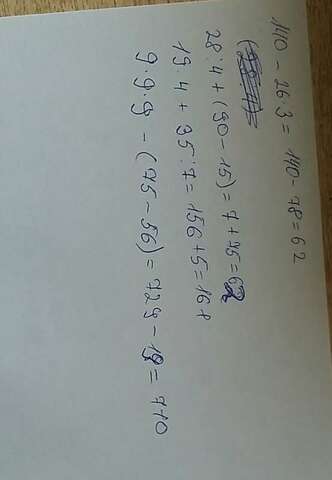 140 - 26·3 = 140 - 78 = 62
28:4 + (90 - 15) = 7 + 75 =
39·4 + 35:7 = 156 + 5 = 161
9·9·9 - (75 - 56) = 729 - 19 = 710